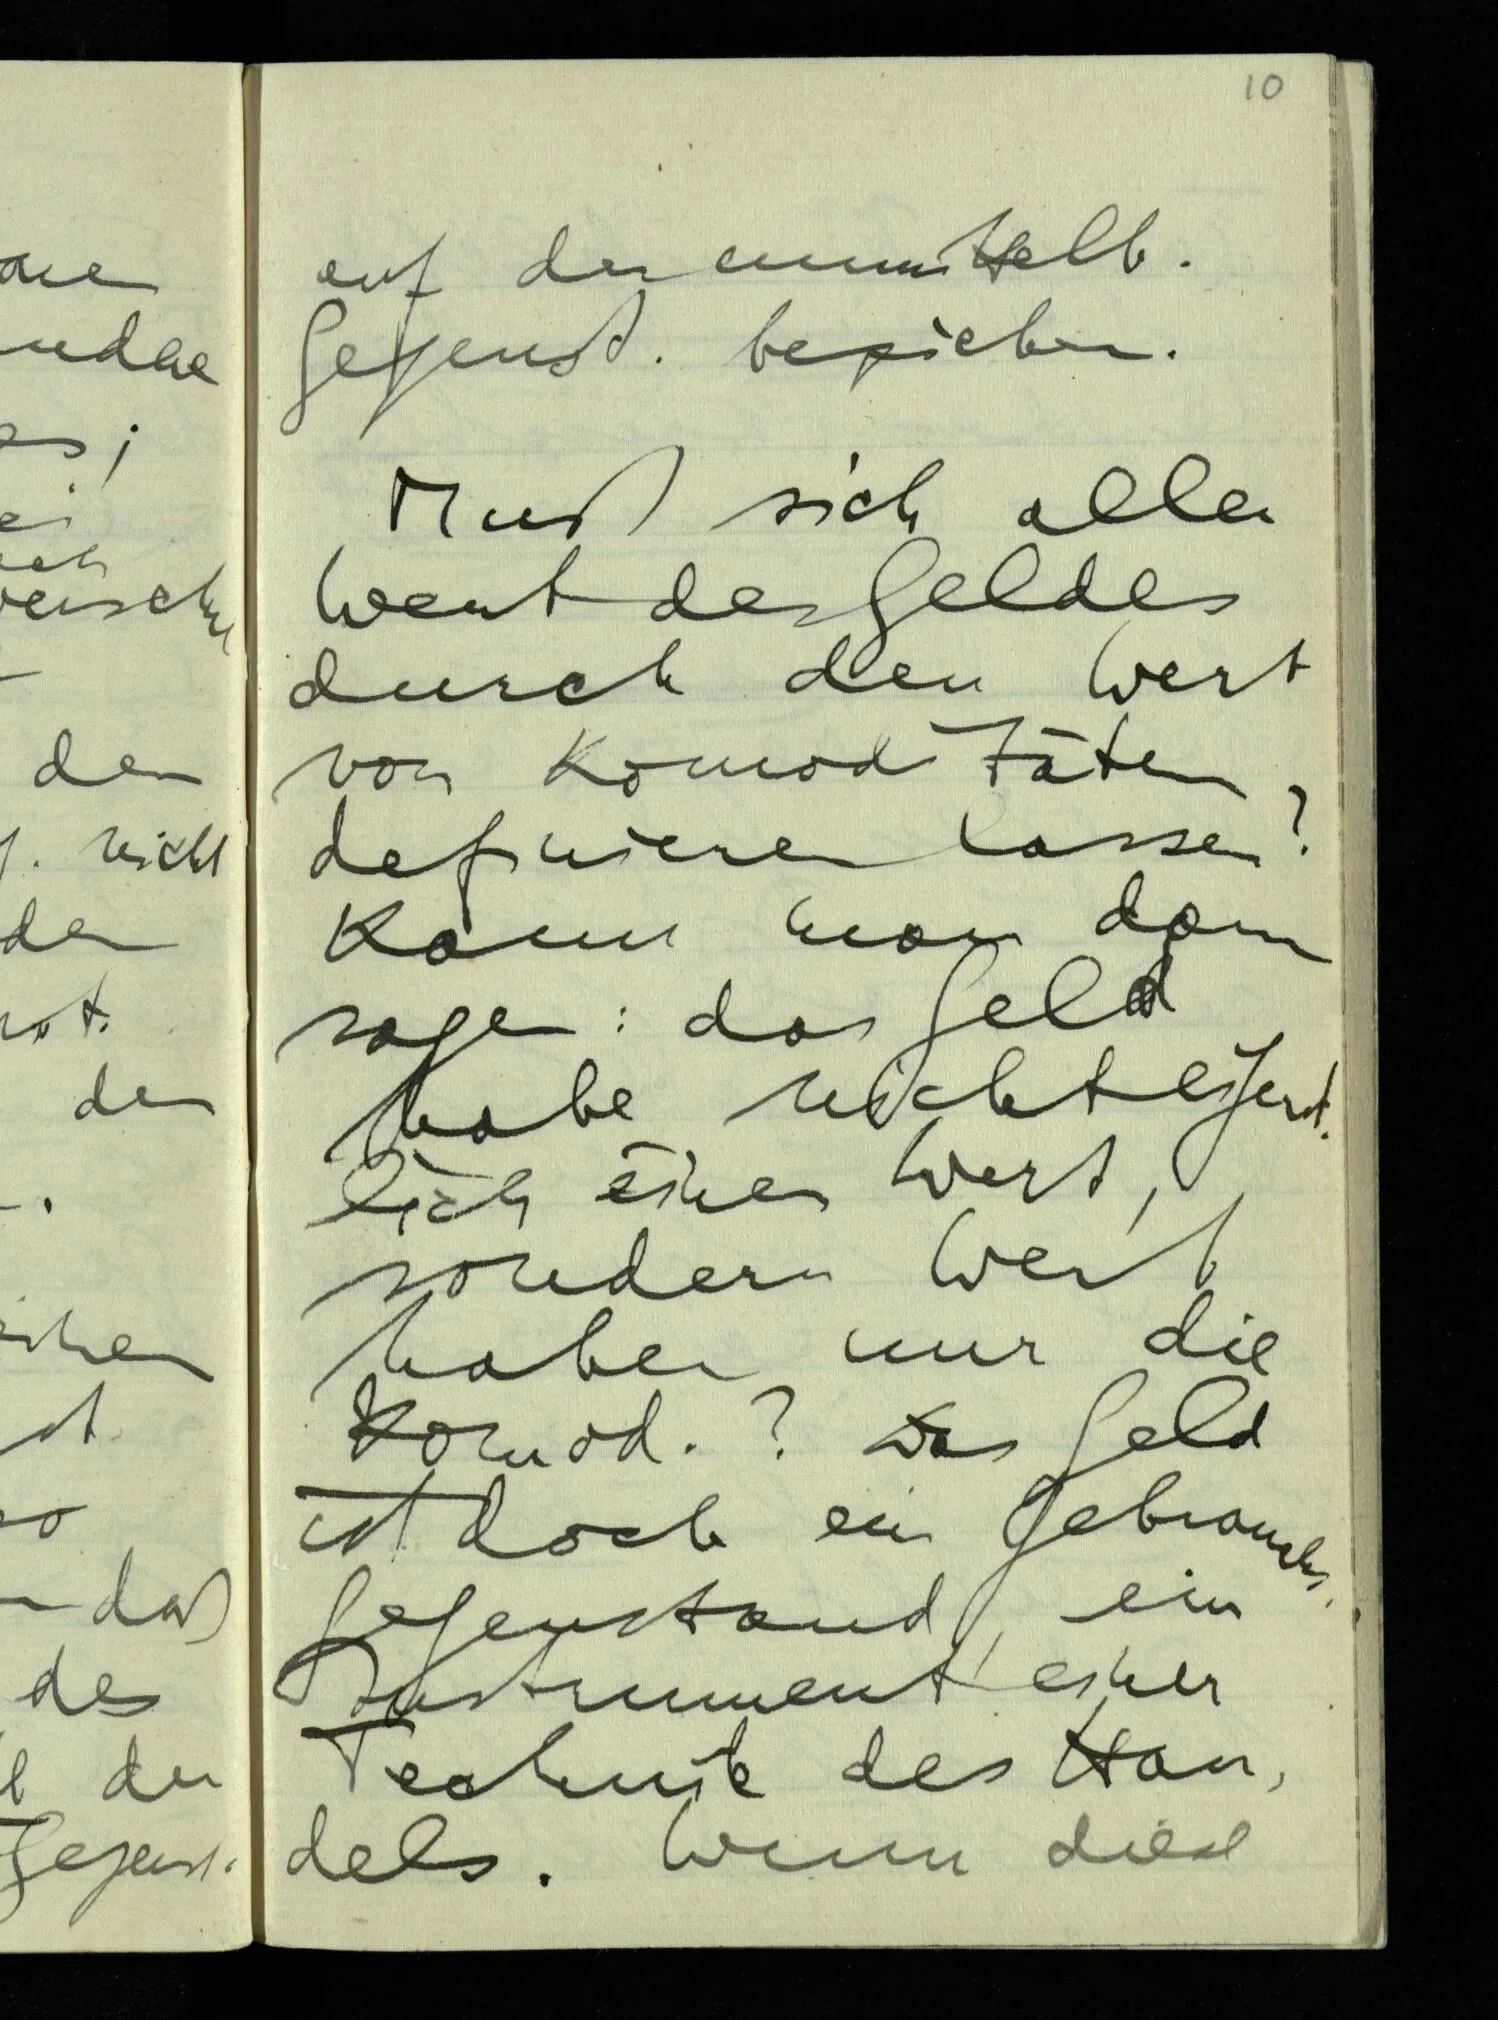 10
auf den unmittelb.
Gegenst. beziehen.
Muß sich aller
Wert des Geldes
durch den Wert
von Komoditäten
definieren lassen?
Kann man dann
sagen: das Geld
habe nicht eigent-
lich einen Wert,
sondern Wert
haben nur die
Komod.? Das Geld
ist doch ein Gebrauchs-
gegenstand, ein
Instrument einer
Technik des Han-
dels. Wenn dies
den
nicht
der
den
daß
des
der
Gegenst.